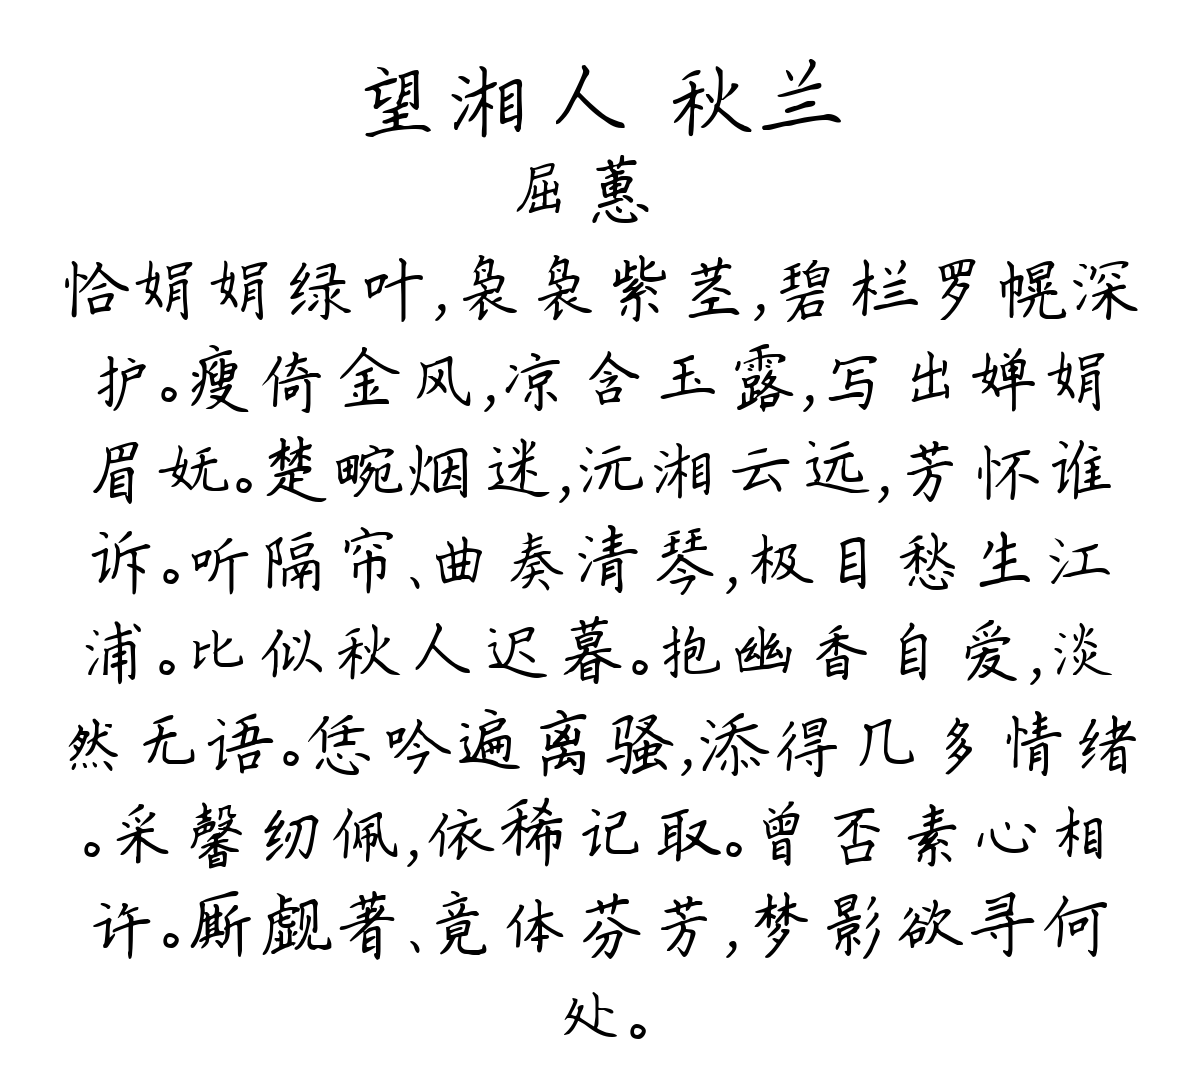 望湘人 秋兰
屈蕙
恰娟娟绿叶,袅袅紫茎,碧栏罗幌深
护。瘦倚金风,凉含玉露,写出婵娟
眉妩。楚畹烟迷,沅湘云远,芳怀谁
诉。听隔帘、曲奏清琴,极目愁生江
浦。比似秋人迟暮。抱幽香自爱,淡
然无语。恁吟遍离骚,添得几多情绪
。采馨纫佩,依稀记取。曾否素心相
许。厮觑著、竟体芬芳,梦影欲寻何
处。